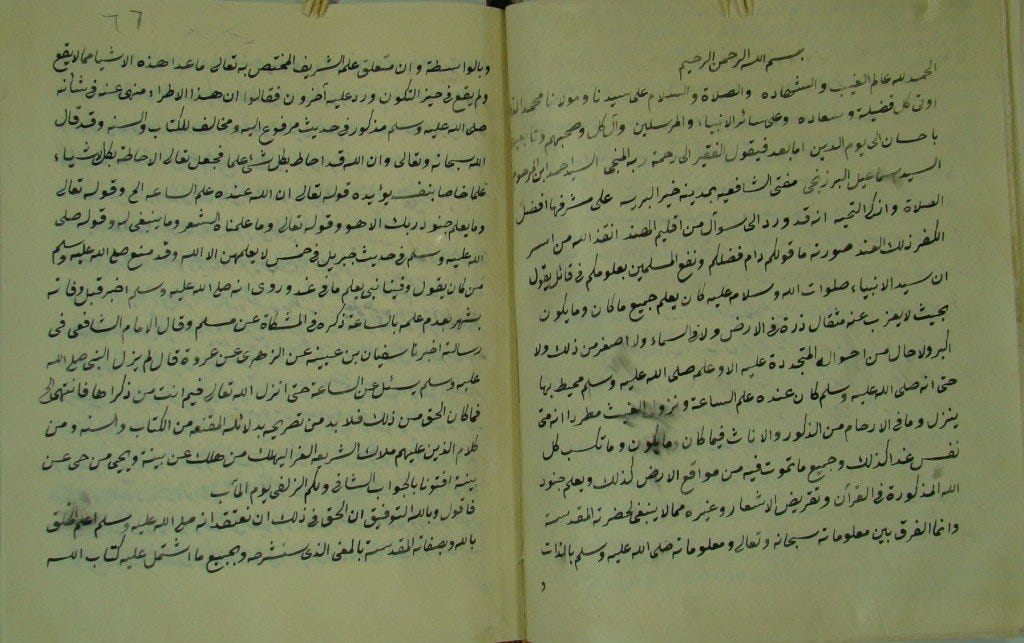 بسم الله الرحمن الرحيم
الحمد لله عالم الغيب والشهاده والصلاة والسلام على سيدنا ومولانا محمد الذي
اوتى كل فضيلة وسعاده وعلى سائر الانبياء والمرسلين وآل كل وصحبهم وتابعيهم
باحسان الى يوم الدين اما بعد فيقول الفقير الى رحمة ربه المنجى السيد احمد ابن المرحوم
السيد اسماعيل البرزنجى مفتى الشافعيه بمدينة خير البريه على مشرفها افضل
الصلاة وازكى التحيه انه قد ورد الى سوآل من اقليم الهند انقذ الله من اسر
الكفر ذلك العقد صورته ما قولكم دام فضلكم ونفع المسلمين بعلومكم فى قائل يقول
ان سيد الانبياء صلوات الله وسلامه عليه كان يعلم جميع ما كان وما يكون
بحيث لا يعزب عنه مثقال ذرة فى الارض ولا فى السماء ولا اصغر من ذلك ولا
اكبر ولا حال من احواله المتجددة عليه الا وعلمه صلى الله عليه وسلم محيط بها
حتى انه صلى الله عليه وسلم كان عنده علم الساعة ونزول الغيث مطردا انه متى
ينزل وما فى الارحام من الذكور والاناث فيما كان وما يكون وما تكسب كل
نفس غدا كذلك وجميع ما تموت فيه من مواقع الارض كذلك ويعلم جنود
الله المذكورة فى القرآن وتقريض الاشعار وغيره مما لا ينبغى لحضرته المقدسة
وانما الفرق بين معلوماته سبحانه وتعالى ومعلوماته صلى الله عليه وسلم بالذات
و
٦٦
وبالواسطة وان متعلق علمه الشريف المختص به تعالى ما عدا هذه الاشياء مما لا يقع
ولم يقع فى حيز التكون ورد عليه آخرون فقالوا ان هذا الاطراء منهى عنه فى شانه
صلى الله عليه وسلم مذكور فى حديث مرفوع اليه ومخالف للكتاب والسنه وقد قال
الله سبحانه وتعالى وان الله قد احاط بكل شئ علما فجعل تعالى الاحاطة بكل الاشياء
علما خاصا بنفسه يؤيده قوله تعالى ان الله عنده علم الساعه الخ وقوله تعالى
وما يعلم جنود ربك الا هو وقوله تعالى وما علمناه الشعر وما ينبغى له وقوله صلى
الله عليه وسلم فى حديث جبريل فى خمس لا يعلمهن الا الله وقد منع صلى الله عليه وسلم
من كان يقول وفينا نبى يعلم ما فى غد وروى انه صلى الله عليه وسلم اخبر قبل وفاته
بشهر بعدم علمه بالساعة ذكره فى المشكاة عن مسلم وقال الامام الشافعى فى
رسالته اخبرنا سفيان بن عيينة عن الزهرى عن عروة قال لم يزل النبى صلى الله
عليه وسلم يسئل عن الساعة حتى انزل الله تعالى فيم انت من ذكراها فانتهى الخ
فما كان الحق من ذلك فلا بد من تصريحه بدلائله المقنعه من الكتاب والسنه ومن
كلام الذين عليهم ملاك الشريعه الغرا ليهلك من هلك عن بينة ويحيى من حى عن
بينة افتونا بالجواب الشافى ولكم الزلفى يوم المآب
فاقول وبالله التوفيق ان الحق فى ذلك ان نعتقد انه صلى الله عليه وسلم اعلم الخلق
بالله وبصفاته المقدسة بالمعنى الذى سنشرحه وبجميع ما اشتمل عليه كتاب الله